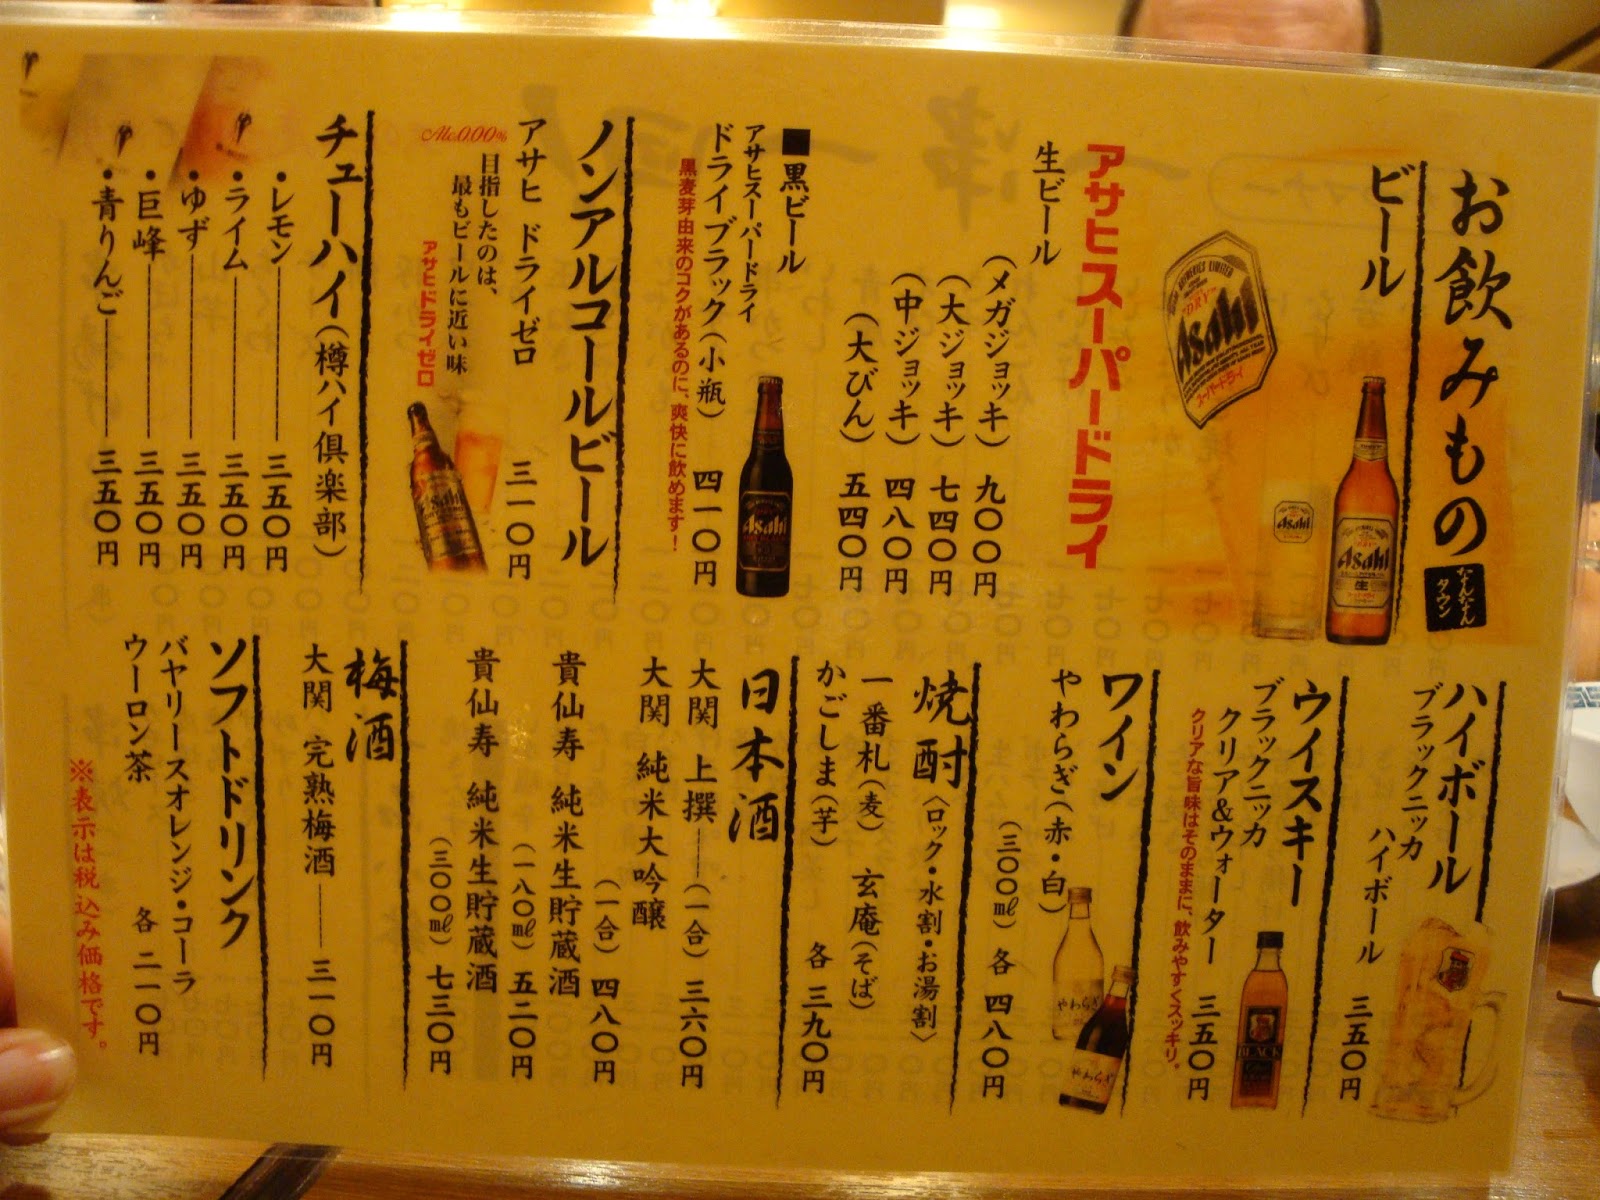 お飲みもの
なんなんタウン
ビール
Asahi
DRY
スーパードライ
Asahi
Asahi
生
アサヒスーパードライ
生ビール
(メガジョッキ) 九〇〇円
(大ジョッキ) 七四〇円
(中ジョッキ) 四八〇円
(大びん) 五四〇円
■黒ビール
アサヒスーパードライ
ドライブラック(小瓶) 四一〇円
黒麦芽由来のコクがあるのに、爽快に飲めます!
Asahi
ノンアルコールビール
アサヒ ドライゼロ 三一〇円
Alc.0.00%
目指したのは、
最もビールに近い味
アサヒドライゼロ
Asahi
チューハイ(樽ハイ倶楽部)
・レモン 三五〇円
・ライム 三五〇円
・ゆず 三五〇円
・巨峰 三五〇円
・青りんご 三五〇円
ハイボール
ブラックニッカ
ハイボール 三五〇円
ウイスキー
ブラックニッカ
クリア&ウォーター 三五〇円
クリアな旨味はそのままに、飲みやすくスッキリ。
BLACK
ワイン
やわらぎ(赤・白)
(三〇〇㎖) 各 四八〇円
やわらぎ
やわらぎ
焼酎〈ロック・水割・お湯割〉
一番札(麦) 玄庵(そば)
かごしま(芋) 各 三九〇円
日本酒
大関 上撰 (一合) 三六〇円
大関 純米大吟醸
(一合) 四八〇円
貴仙寿 純米生貯蔵酒
(一八〇㎖) 五二〇円
貴仙寿 純米生貯蔵酒
(三〇〇㎖) 七三〇円
梅酒
大関 完熟梅酒 三一〇円
ソフトドリンク
バヤリースオレンジ・コーラ
ウーロン茶 各 二一〇円
※表示は税込み価格です。